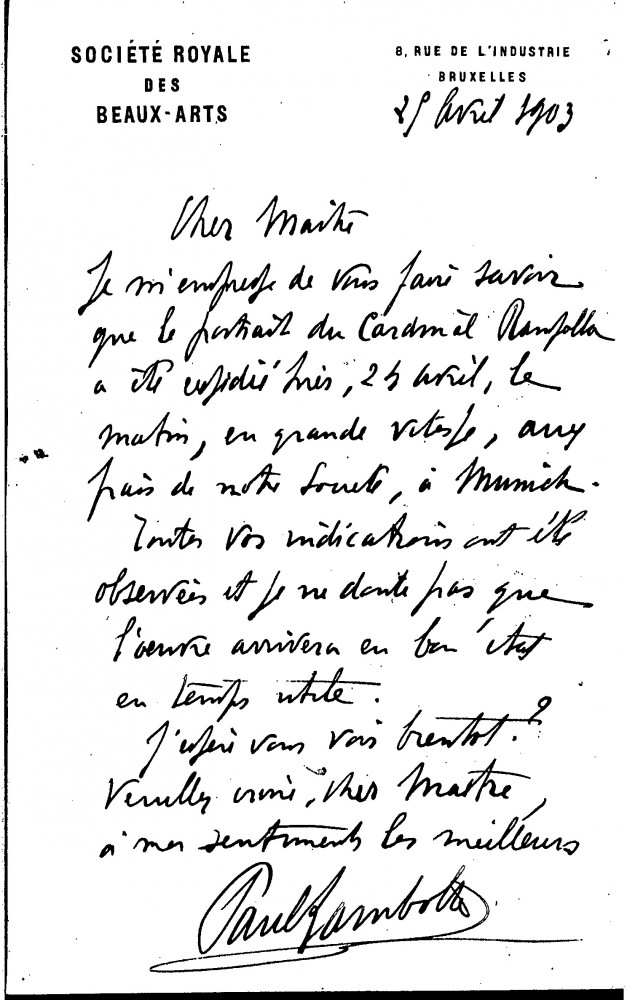 SOCIÉTÉ ROYALE
DES
BEAUX-ARTS
8, RUE DE L'INDUSTRIE
BRUXELLES
25 avril 1903
Cher Maître
Je m'empresse de vous faire savoir
que le portrait du Cardinal Rampolla
a été expédié hier, 24 avril, le
matin, en grande vitesse, aux
frais de notre Société, à Munich.
Toutes vos indications ont été
observées et je ne doute pas que
l'œuvre arrivera en bon état
en temps utile.
J'espère vous voir bientôt.
Veuillez croire, cher Maître,
à mes sentiments les meilleurs
Paul Lambotte